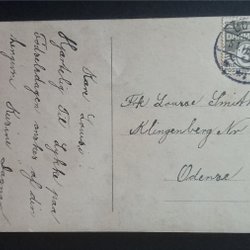 Kære Louise
Hjærtelig til Lykke paa
Fødselsdagen ønsker af din
hengivne Kirine
Frk Louise Smith
Klingenberg Nr
Odense